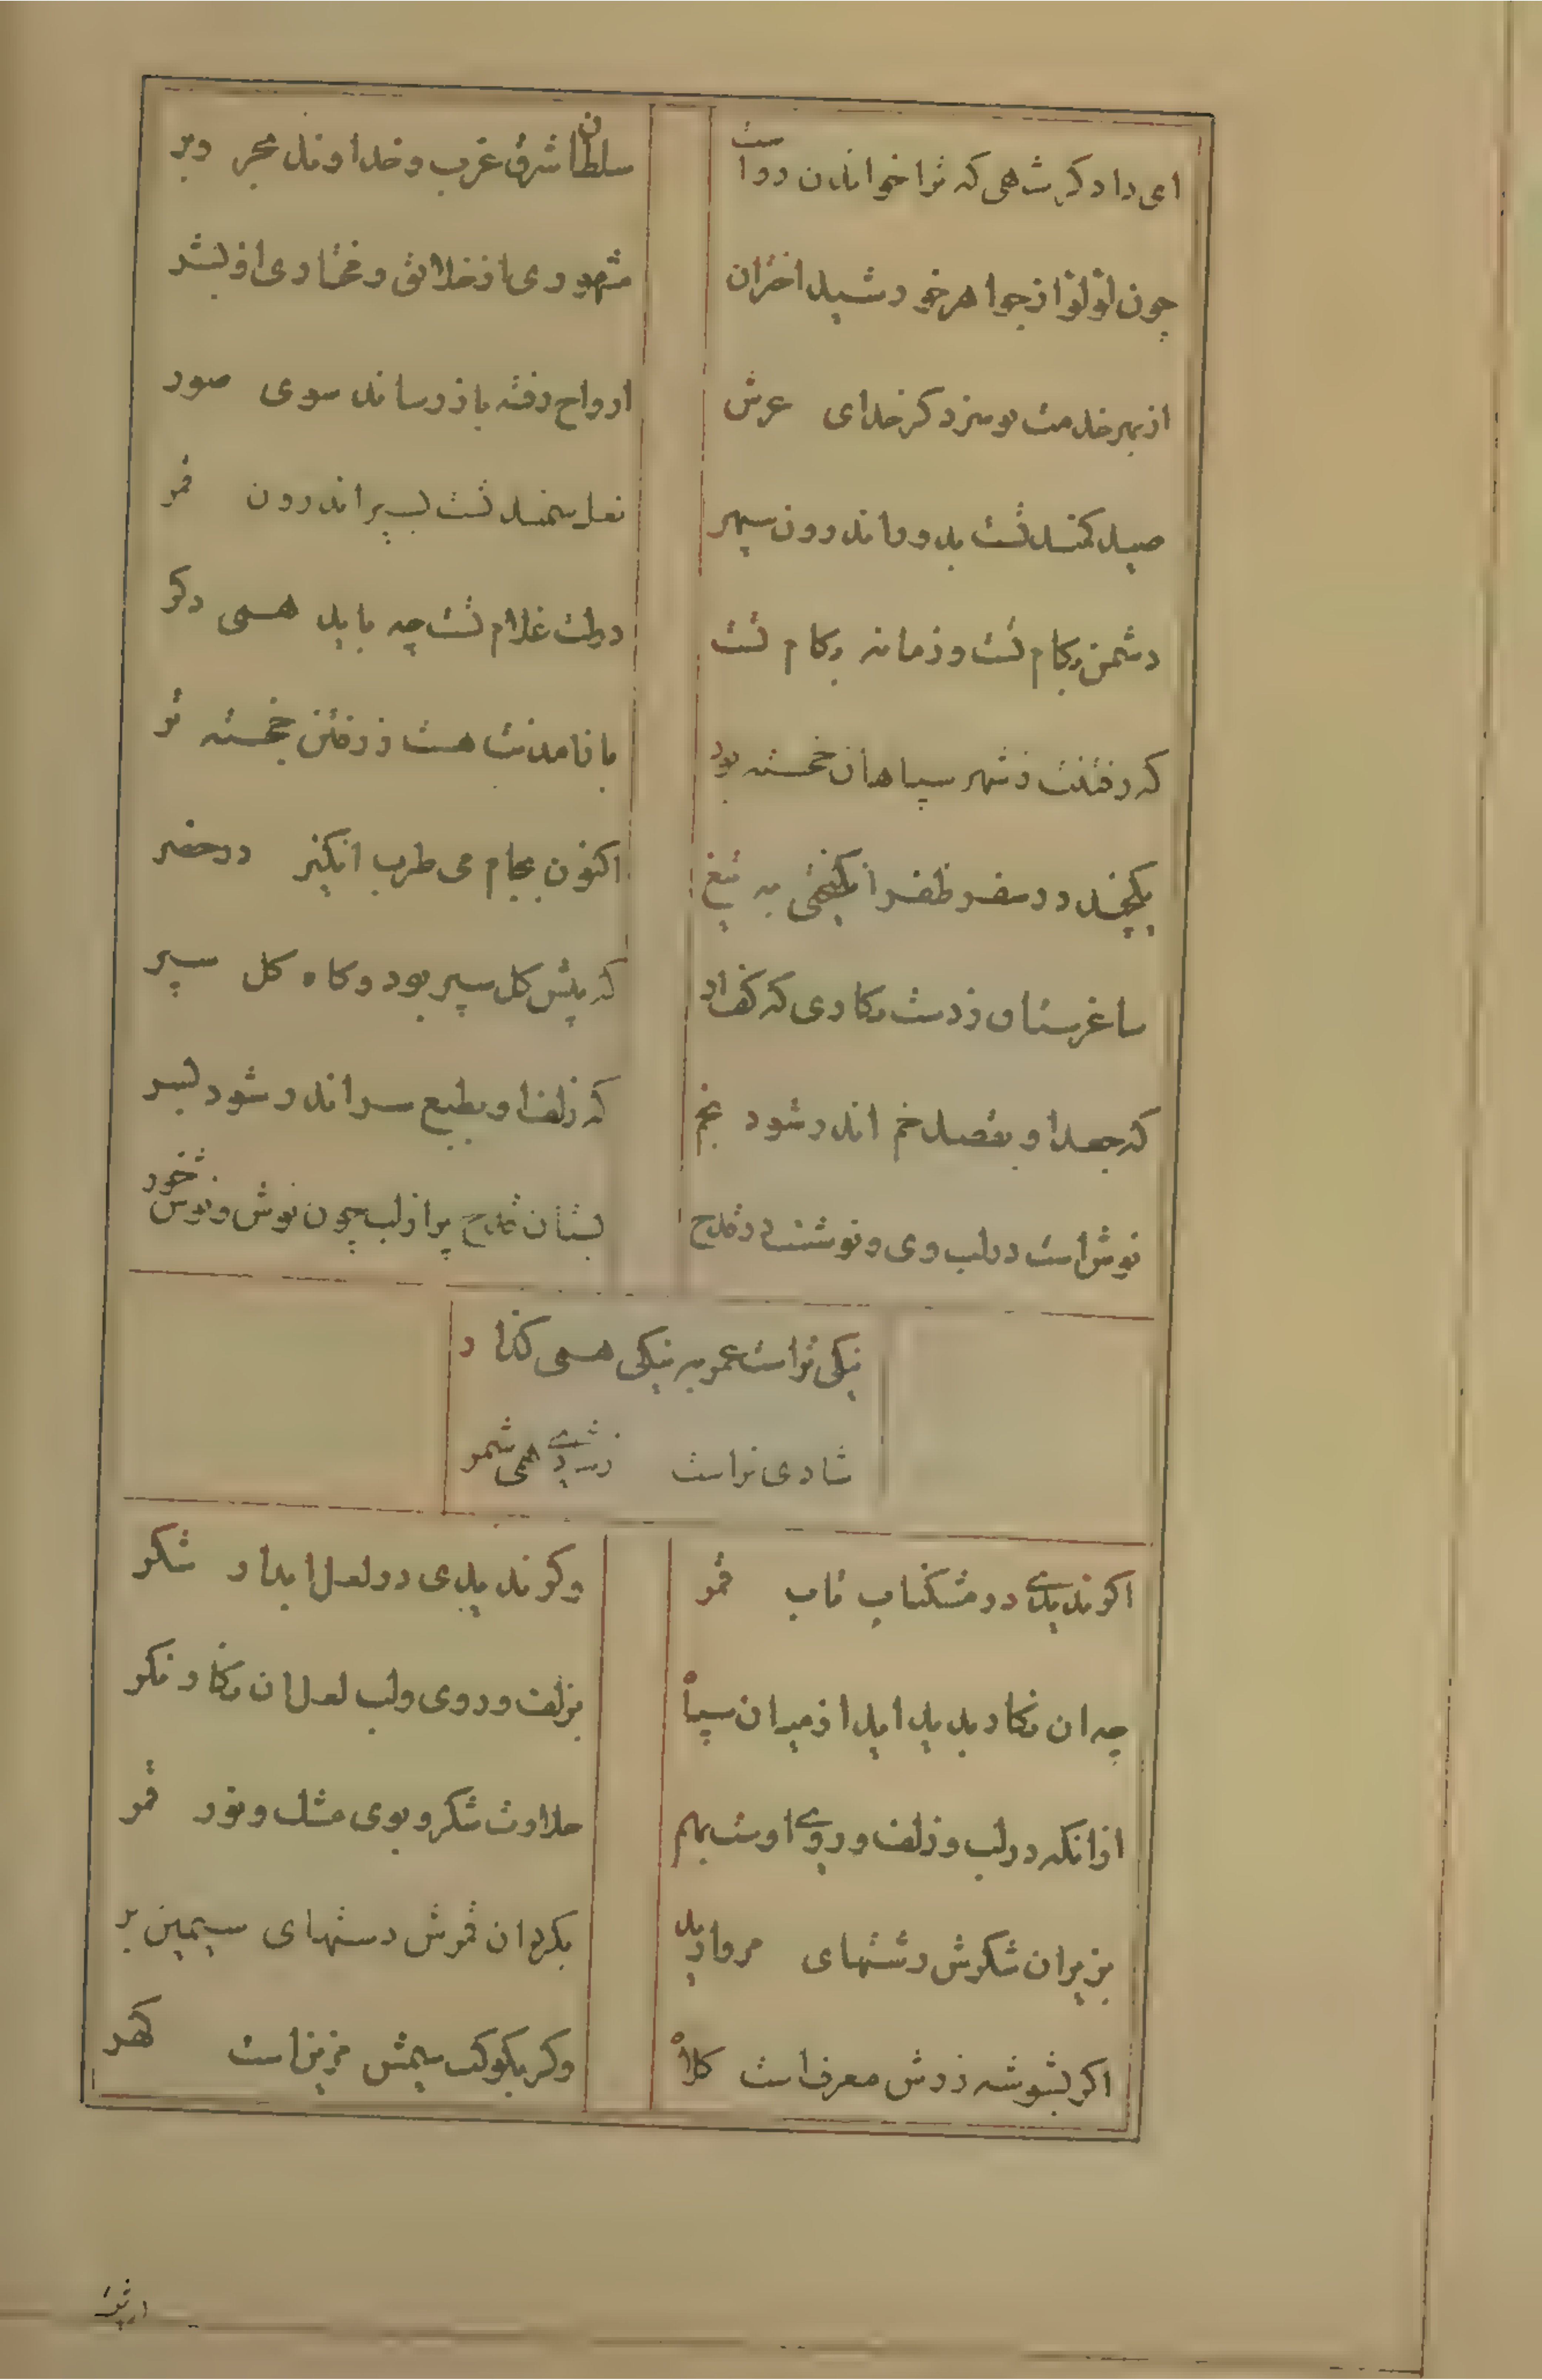 ای دادکر شاهی که ترا خواندن رواست
سلطان شرق غرب و خداوند بحر و بر
چون لؤلؤ از جواهر خورشید اختران
مشهوری از خلایق و مختاری از بشر
از بهر خدمت تو سزد کر خدای عرش
ارواح رفته باز رساند سوی صور
صید کمند تست بدور اندرون سپهر
نعل سمند تست بسیر اندرون قمر
دشمن بکام تست و زمانه بکام تست
دولت غلام تست چه باید همی دکر
که رفتنت ز شهر سپاهان خجسته بود
باز آمدنت هست ز رفتن خجسته تر
یکچند در سفر ظفر انکیختی به تیغ
اکنون بجام می طرب انکیز در حضر
ساغر ستان ز دست نکاری که کف او
که پیش کل سپر بود و کاه کل سپر
که جعد او بقصد خم اندر شود بخم
که زلف او بطبع سر اندر شود بسر
نوش است در لب وی و نوشست در قدح
بستان قدح پر از لب چون نوش و نوش خور
نیکی تراست عمر به نیکی همی کذار
شادی تراست همی شمر
اکر ندیدی در مشکناب تاب قمر
وکر ندیدی در لعل ابدار شکر
چه ان نکار پدید اید از میان سپاه
بزلف و روی و لب لعل ان نکار نکر
از انکه در لب و زلف و روی اوست بهم
حلاوت شکر و بوی مشک و نور قمر
بزیر ان شکرش رشتهای مروارید
بکرد ان قمرش دستهای سیمین بر
اکر بشوشه زرش معرف است کلاه
وکر بکوکب سیمش مزین است کمر